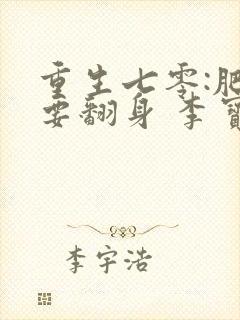 重生七零:肥
要翻身 李寶
李宇浩